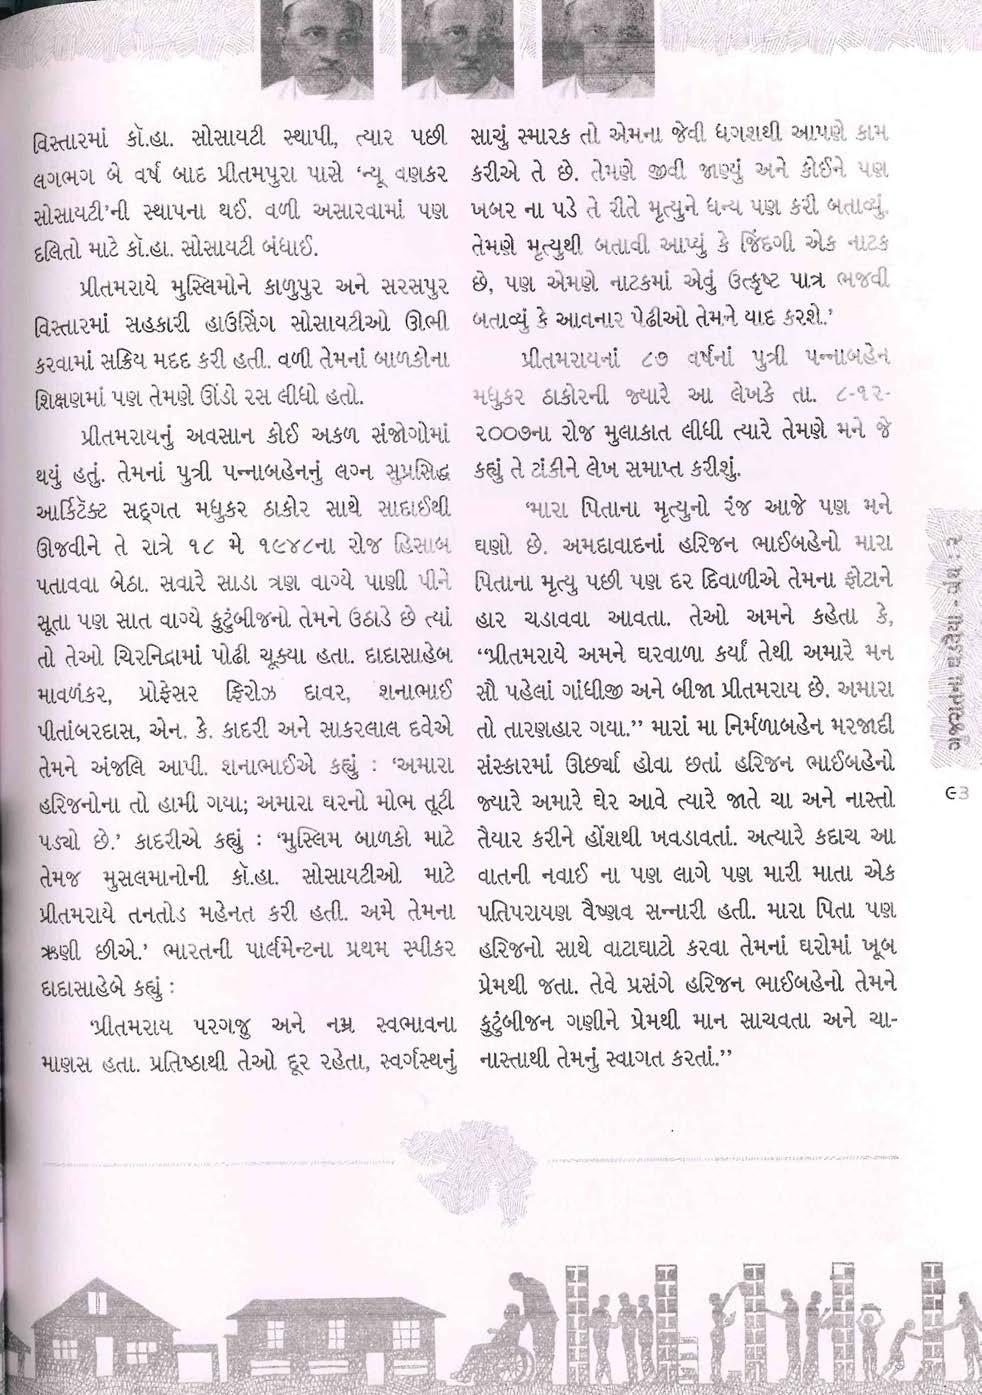 વિસ્તારમાં કૉ.હા. સોસાયટી સ્થાપી, ત્યાર પછી
લગભગ બે વર્ષ બાદ પ્રીતમપુરા પાસે ‘ન્યૂ વણકર
સોસાયટી’ની સ્થાપના થઈ. વળી અસારવામાં પણ
દલિતો માટે કૉ.હા. સોસાયટી બંધાઈ.
પ્રીતમરાયે મુસ્લિમોને કાળુપુર અને સરસપુર
વિસ્તારમાં સહકારી હાઉસિંગ સોસાયટીઓ ઊભી
કરવામાં સક્રિય મદદ કરી હતી. વળી તેમનાં બાળકોના
શિક્ષણમાં પણ તેમણે ઊંડો રસ લીધો હતો.
પ્રીતમરાયનું અવસાન કોઈ અકળ સંજોગોમાં
થયું હતું. તેમનાં પુત્રી પન્નાબહેનનું લગ્ન સુપ્રસિદ્ધ
આર્કિટૅક્ટ સદ્ગત મધુકર ઠાકોર સાથે સાદાઈથી
ઊજવીને તે રાત્રે ૧૮ મે ૧૯૪૮ના રોજ હિસાબ
પતાવવા બેઠા. સવારે સાડા ત્રણ વાગ્યે પાણી પીને
સૂતા પણ સાત વાગ્યે કુટુંબીજનો તેમને ઉઠાડે છે ત્યાં
તો તેઓ ચિરનિદ્રામાં પોઢી ચૂક્યા હતા. દાદાસાહેબ
માવળંકર, પ્રોફેસર ફિરોઝ દાવર, શનાભાઈ
પીતાંબરદાસ, એન. કે. કાદરી અને સાકરલાલ દવેએ
તેમને અંજલિ આપી. શનાભાઈએ કહ્યું : ‘અમારા
હરિજનોના તો હામી ગયા; અમારા ઘરનો મોભ તૂટી
પડ્યો છે.’ કાદરીએ કહ્યું : ‘મુસ્લિમ બાળકો માટે
તેમજ મુસલમાનોની કૉ.હા. સોસાયટીઓ માટે
પ્રીતમરાયે તનતોડ મહેનત કરી હતી. અમે તેમના
ઋણી છીએ.’ ભારતની પાર્લમેન્ટના પ્રથમ સ્પીકર
દાદાસાહેબે કહ્યું :
‘પ્રીતમરાય પરગજુ અને નમ્ર સ્વભાવના
માણસ હતા. પ્રતિષ્ઠાથી તેઓ દૂર રહેતા, સ્વર્ગસ્થનું
સાચું સ્મારક તો એમના જેવી ધગશથી આપણે કામ
કરીએ તે છે. તેમણે જીવી જાણ્યું અને કોઈને પણ
ખબર ના પડે તે રીતે મૃત્યુને ધન્ય પણ કરી બતાવ્યું.
તેમણે મૃત્યુથી બતાવી આપ્યું કે જિંદગી એક નાટક
છે, પણ એમણે નાટકમાં એવું ઉત્કૃષ્ટ પાત્ર ભજવી
બતાવ્યું કે આવનાર પેઢીઓ તેમને યાદ કરશે.’
પ્રીતમરાયનાં ૮૭ વર્ષનાં પુત્રી પન્નાબહેન
મધુકર ઠાકોરની જ્યારે આ લેખકે તા. ૮-૧૨-
૨૦૦૭ના રોજ મુલાકાત લીધી ત્યારે તેમણે મને જે
કહ્યું તે ટાંકીને લેખ સમાપ્ત કરીશું.
‘મારા પિતાના મૃત્યુનો રંજ આજે પણ મને
ઘણો છે. અમદાવાદનાં હરિજન ભાઈબહેનો મારા
પિતાના મૃત્યુ પછી પણ દર દિવાળીએ તેમના ફોટાને
હાર ચડાવવા આવતા. તેઓ અમને કહેતા કે,
‘‘પ્રીતમરાયે અમને ઘરવાળા કર્યાં તેથી અમારે મન
સૌ પહેલાં ગાંધીજી અને બીજા પ્રીતમરાય છે. અમારા
તો તારણહાર ગયા.’’ મારાં મા નિર્મળાબહેન મરજાદી
સંસ્કારમાં ઊછર્યા હોવા છતાં હરિજન ભાઈબહેનો
જ્યારે અમારે ઘેર આવે ત્યારે જાતે ચા અને નાસ્તો
તૈયાર કરીને હોંશથી ખવડાવતાં. અત્યારે કદાચ આ
વાતની નવાઈ ના પણ લાગે પણ મારી માતા એક
પતિપરાયણ વૈષ્ણવ સન્નારી હતી. મારા પિતા પણ
હરિજનો સાથે વાટાઘાટો કરવા તેમનાં ઘરોમાં ખૂબ
પ્રેમથી જતા. તેવે પ્રસંગે હરિજન ભાઈબહેનો તેમને
કુટુંબીજન ગણીને પ્રેમથી માન સાચવતા અને ચા-
નાસ્તાથી તેમનું સ્વાગત કરતાં.’’
ગુજરાતના ઘડવૈયા - ગ્રંથ : ૨
૯૩